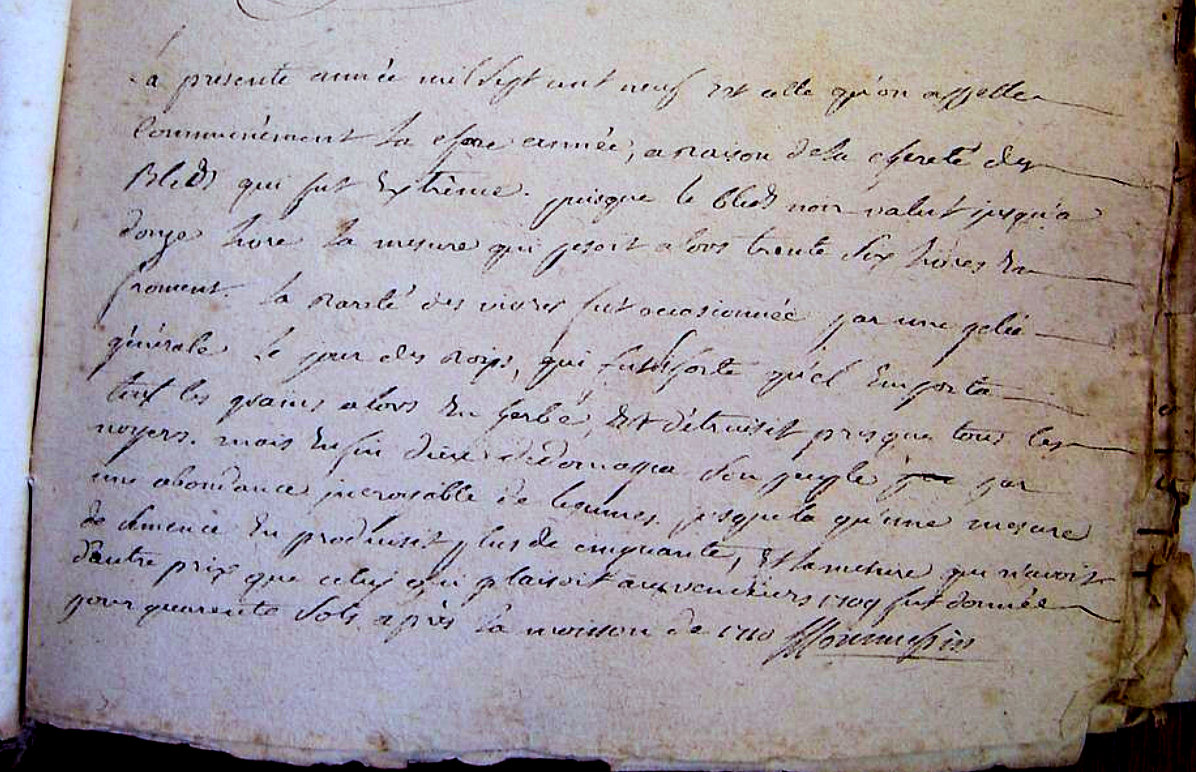 La présente année mil sept cent neuf est celle qu'on appelle
Communément la chere année, a raison de la chereté des
Bleds qui fut Extrême. puisque le bled noir valut jusqu'a
douze livre la mesure qui pesoit alors trente six livres En
froment. la rareté des vivres fut occasionnée par une gelée
générale le jour des roips, qui fut si forte qu'el Emporta
tous les grains alors En herbe, Et détruisit presque tous les
noyers. mais Enfin dieu dédomagea son peuple par
une abondance incroiable de legumes. jusque la qu'une mesure
de semence En produisit plus de cinquante, Et la mesure qui n'avoit
d'autre prix que celuy qui plaisoit aux vendeurs 1709 fut donnée
pour quarente sols après la moisson de 1710